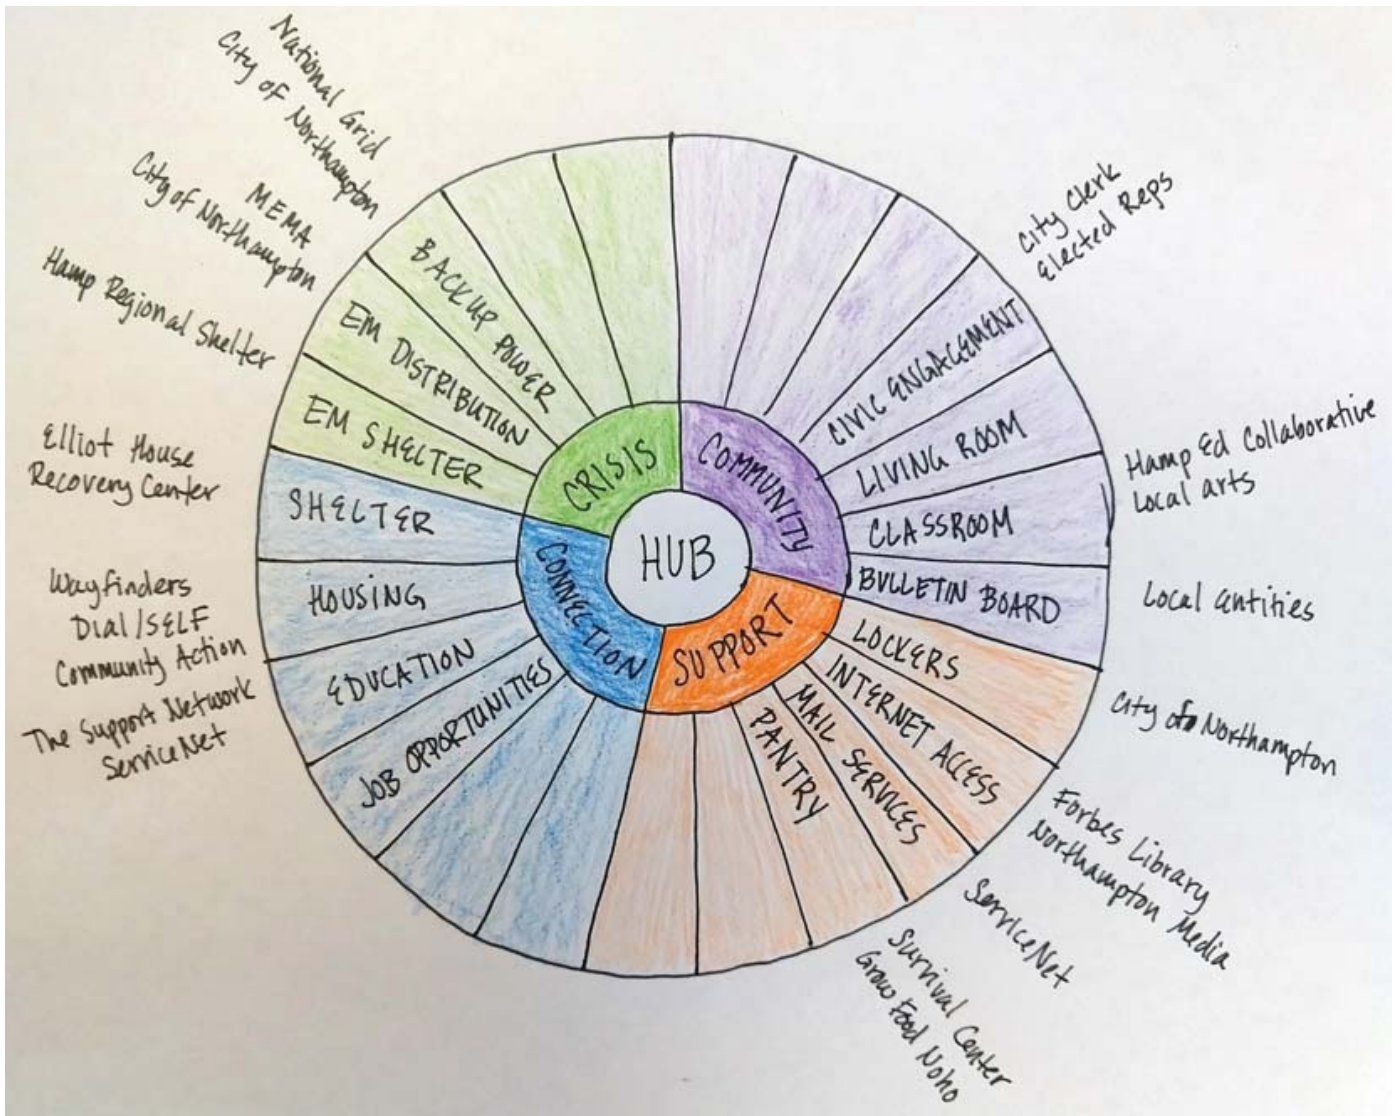 HUB
CRISIS
COMMUNITY
SUPPORT
CONNECTION
BACKUP POWER
EM DISTRIBUTION
EM SHELTER
SHELTER
HOUSING
EDUCATION
JOB OPPORTUNITIES
CIVIC ENGAGEMENT
LIVING ROOM
CLASSROOM
BULLETIN BOARD
LOCKERS
INTERNET ACCESS
MAIL SERVICES
PANTRY
National Grid
City of Northampton
MEMA
City of Northampton
Hamp Regional Shelter
Elliot House
Recovery Center
Wayfinders
Dial/SELF
Community Action
The Support Network
ServiceNet
City Clerk
Elected Reps
Hamp Ed Collaborative
Local arts
Local entities
City of Northampton
Forbes Library
Northampton Media
ServiceNet
Survival Center
Grow Food Noho